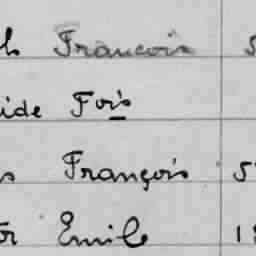 Francois 5
ide Fois
s François 5
or Emile 18